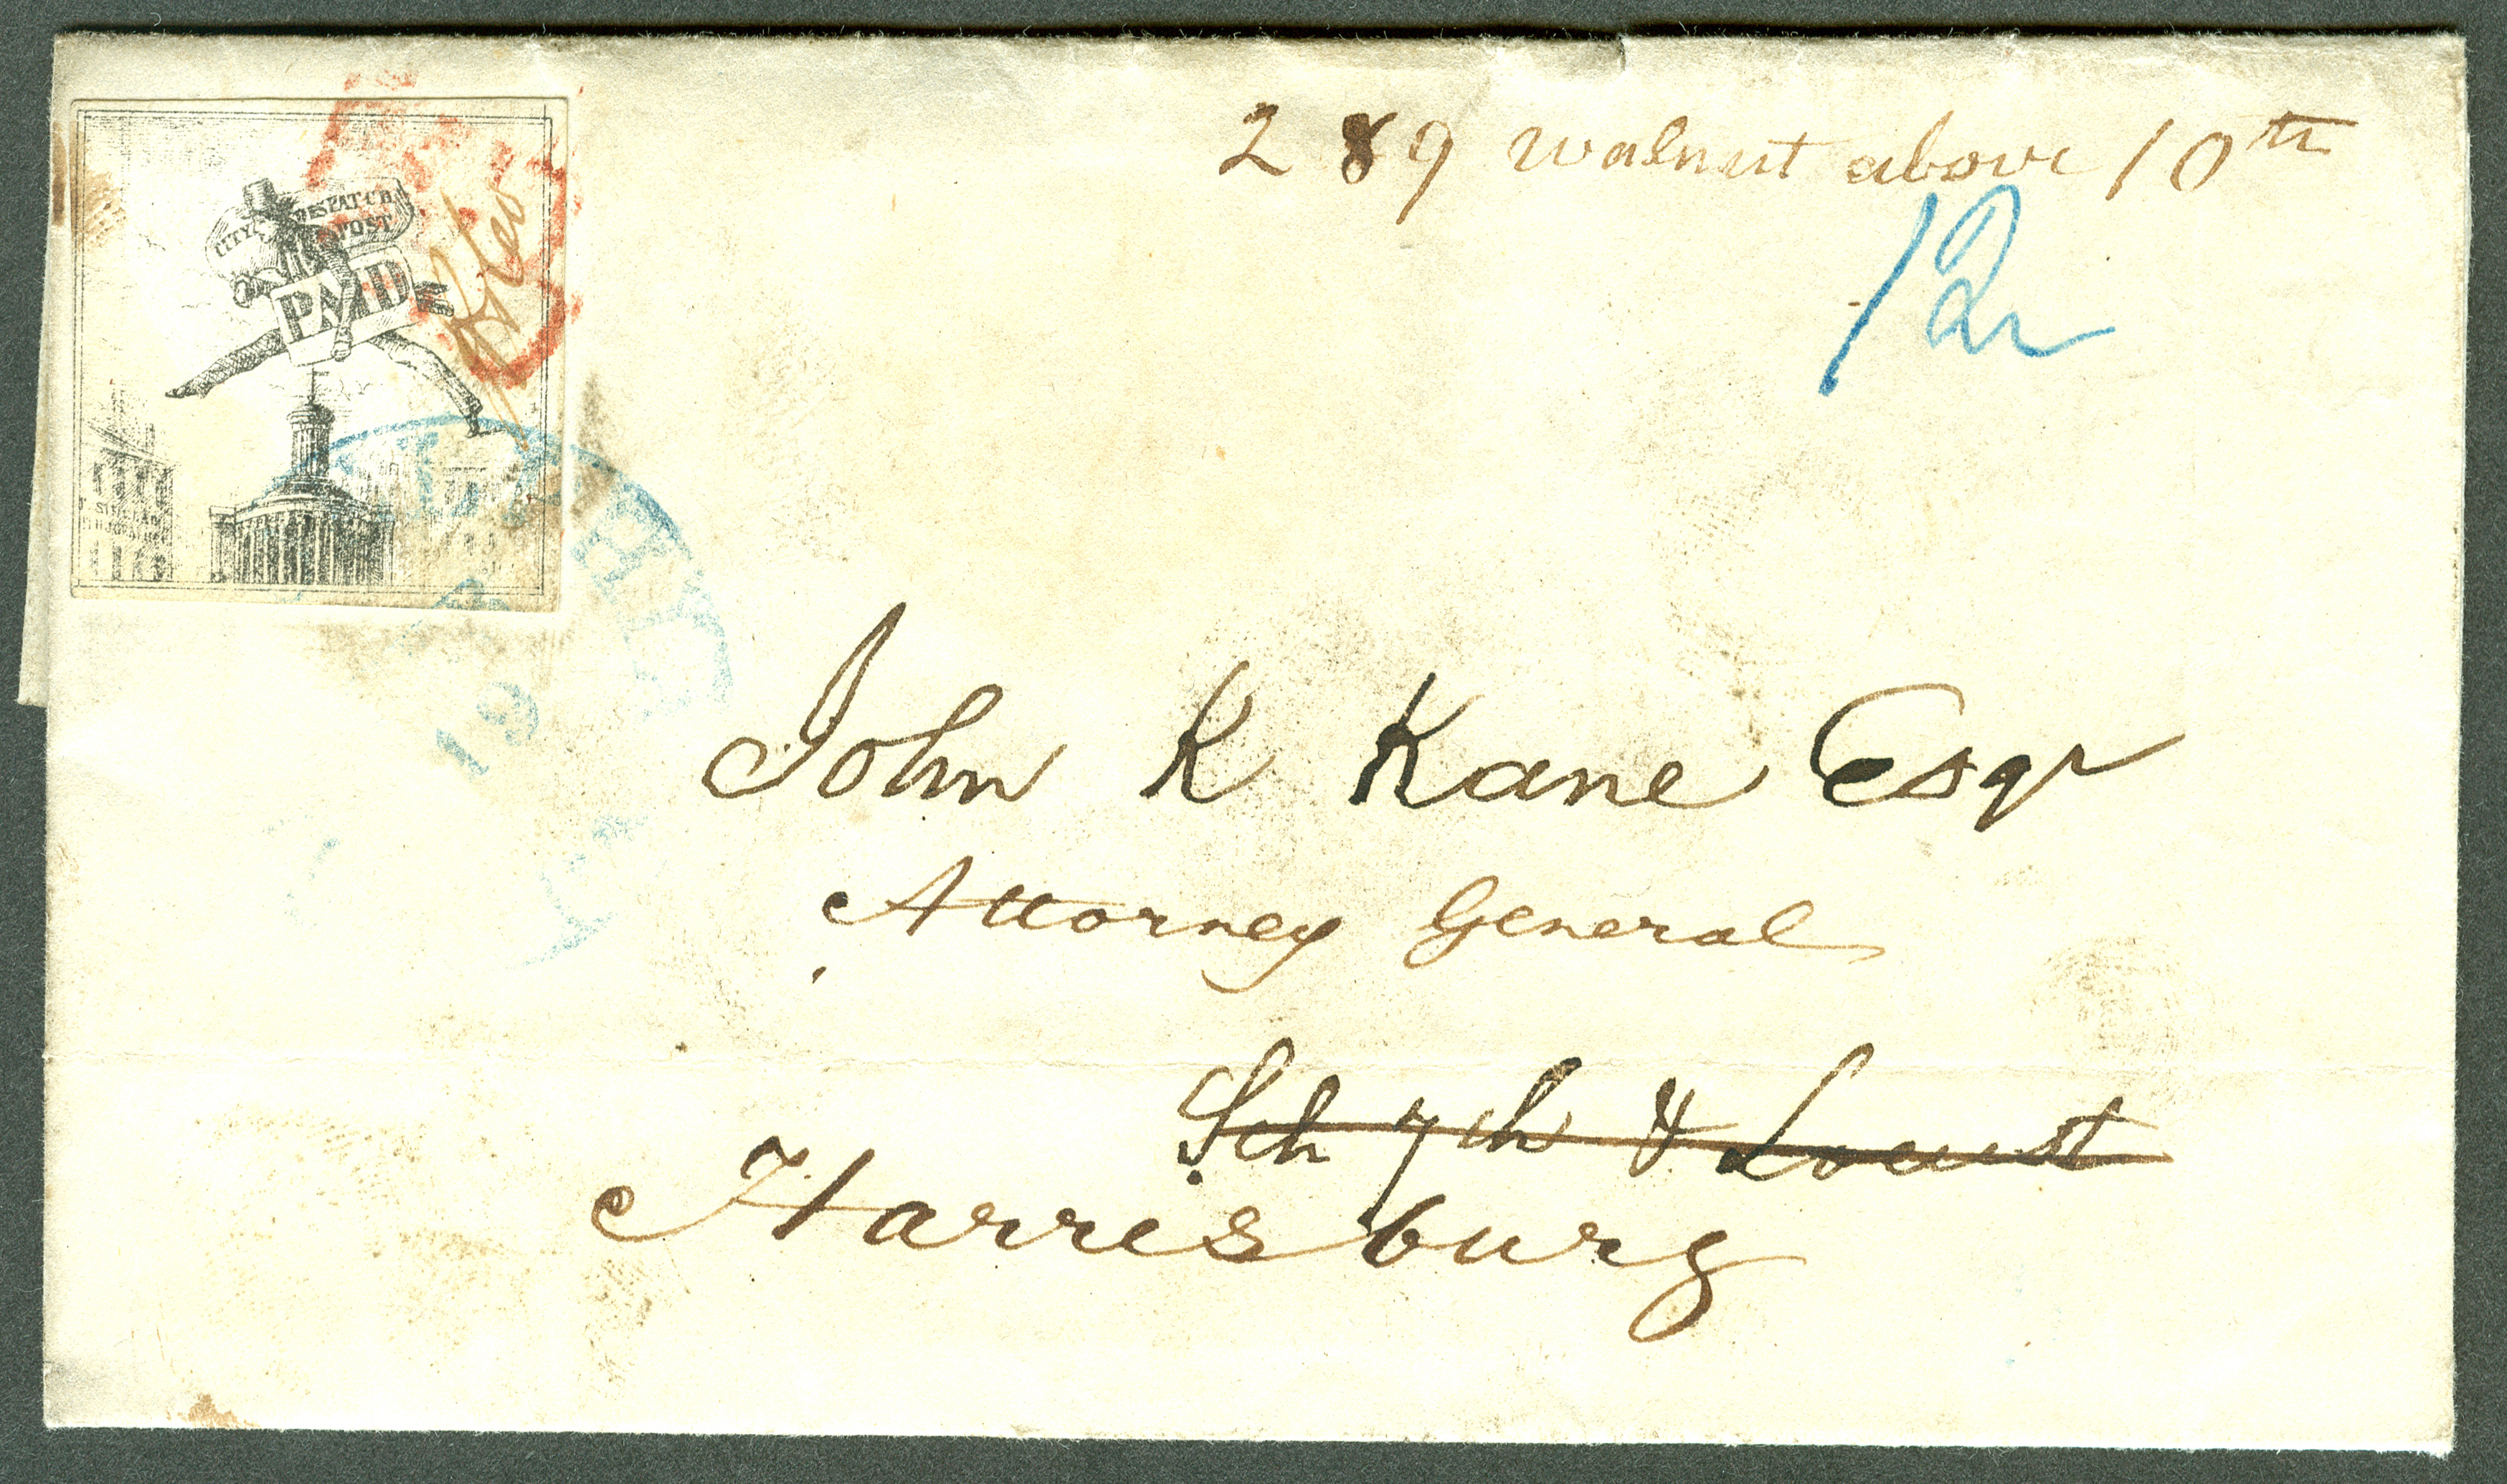 289 Walnut above 10th
12
CITY DESPATCH
POST
PAID
19
John K Kane Esqr
Attorney General
Sch 7th & Locust
Harrisburg